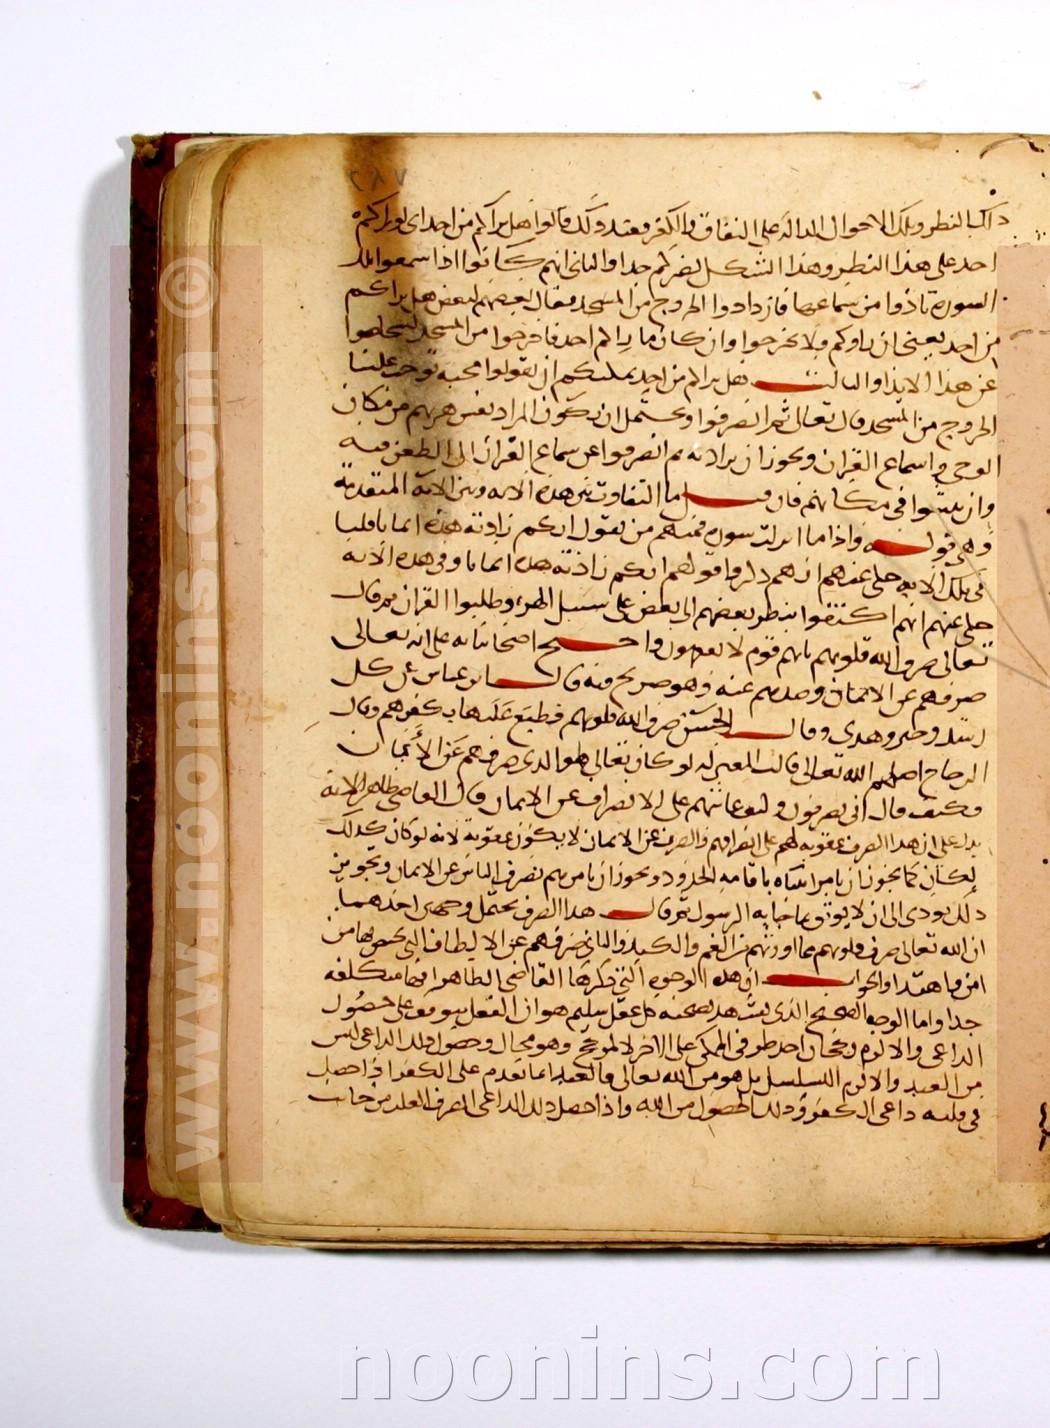 ذلك النظر وتلك الاحوال الدالة على النفاق والكفر فعند ذلك قالوا هل يراكم من احد اى لو راكم
احد على هذا النظر وهذا الشكل لضركم جدا والثانى انهم كانوا اذا سمعوا تلك
السورة تاذوا من سماعها فارادوا الخروج من المسجد فقال بعضهم لبعض هل يراكم
من احد يعنى ان راوكم فلا تخرجوا وان كان ما راكم احد فاخرجوا من المسجد لتتخلصوا
عن هذا الايذا والثالث هل يراكم من احد يمكنكم ان تقولوا محبة توجب علينا
الخروج من المسجد قال تعالى ثم انصرفوا ويحتمل ان يكون المراد نفس هربهم من مكان
الوحى واسماع القران ويجوز ان يراد به ثم انصرفوا عن سماع القران الى الطعن فيه
وان ثبتوا فى مكانهم فان قيل ما التفاوت بين هذه الاية وبين الاية المتقدمة
وهى قوله واذا ما انزلت سورة فمنهم من يقول ايكم زادته هذه ايمانا قلنا
فى تلك الاية حكى عنهم انهم ذكروا قولهم ايكم زادته هذه ايمانا وفى هذه الاية
حكى عنهم انهم اكتفوا بنظر بعضهم الى بعض على سبيل الهزء وطلبوا القران ثم قال
تعالى صرف الله قلوبهم بانهم قوم لا يفقهون واحتج اصحابنا به على انه تعالى
صرفهم عن الايمان وصدهم عنه وهو صريح فيه قال ابن عباس عن كل
رشد وخير وهدى وقال الحسن صرف الله قلوبهم فطبع عليها بكفرهم وقال
الزجاج اضلهم الله تعالى قالت المعتزلة لو كان تعالى هو الذى صرفهم عن الايمان
فكيف قال انى يصرفون وكيف عاتبهم على الانصراف عن الايمان قال القاضى ظاهر الاية
يدل على ان هذا الصرف عقوبة لهم على انصرافهم والصرف عن الايمان لا يكون عقوبة لانه لو كان كذلك
لكان كما يجوز ان يامر انبياه باقامة الحدود ويجوز ان يامرهم بصرف الناس عن الايمان وتجويز
ذلك يودى الى ان لا يوثق بما جا به الرسول ثم قال هذا الصرف يحتمل وجهين احدهما
ان الله تعالى صرف قلوبهم بما اورثهم من الغم والكيد والثانى صرفهم عن الالطاف التى يختص بها من
امن واهتدا والجواب ان هذه الوجوه التى ذكرها القاضى الظاهر انها متكلفة
جدا واما الوجه الصحيح الذى يشهد بصحته كل عقل سليم هو ان الفعل يتوقف على حصول
الداعى والا لزم رجحان احد طرفى الممكن على الاخر لا لمرجح وهو محال وحصول ذلك الداعى ليس
من العبد والا لزم التسلسل بل هو من الله تعالى فالعبد انما يقدم على الكفر اذا حصل
فى قلبه داعى الكفر وذلك الحصول من الله واذا حصل ذلك الداعى انصرف القلب من جانب
www.noonins.com ©
noonins.com